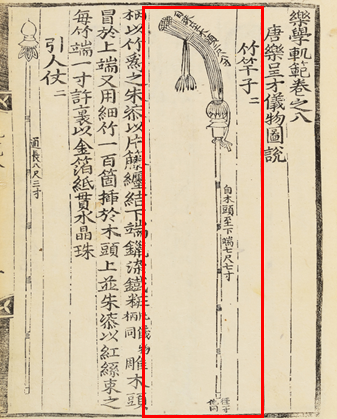 樂學軌範卷之八
唐樂呈才儀物圖說
竹竿子二
自木頭至下端七尺七寸
柄以竹爲之朱漆以片藤纏結下端鑞染鐵粧儀物柄同雕木頭
冒於上端又用細竹一百箇揷於木頭上並朱漆以紅絲束之
每竹端一寸許裹以金箔紙貫水晶珠
引人仗二
通長八尺三寸